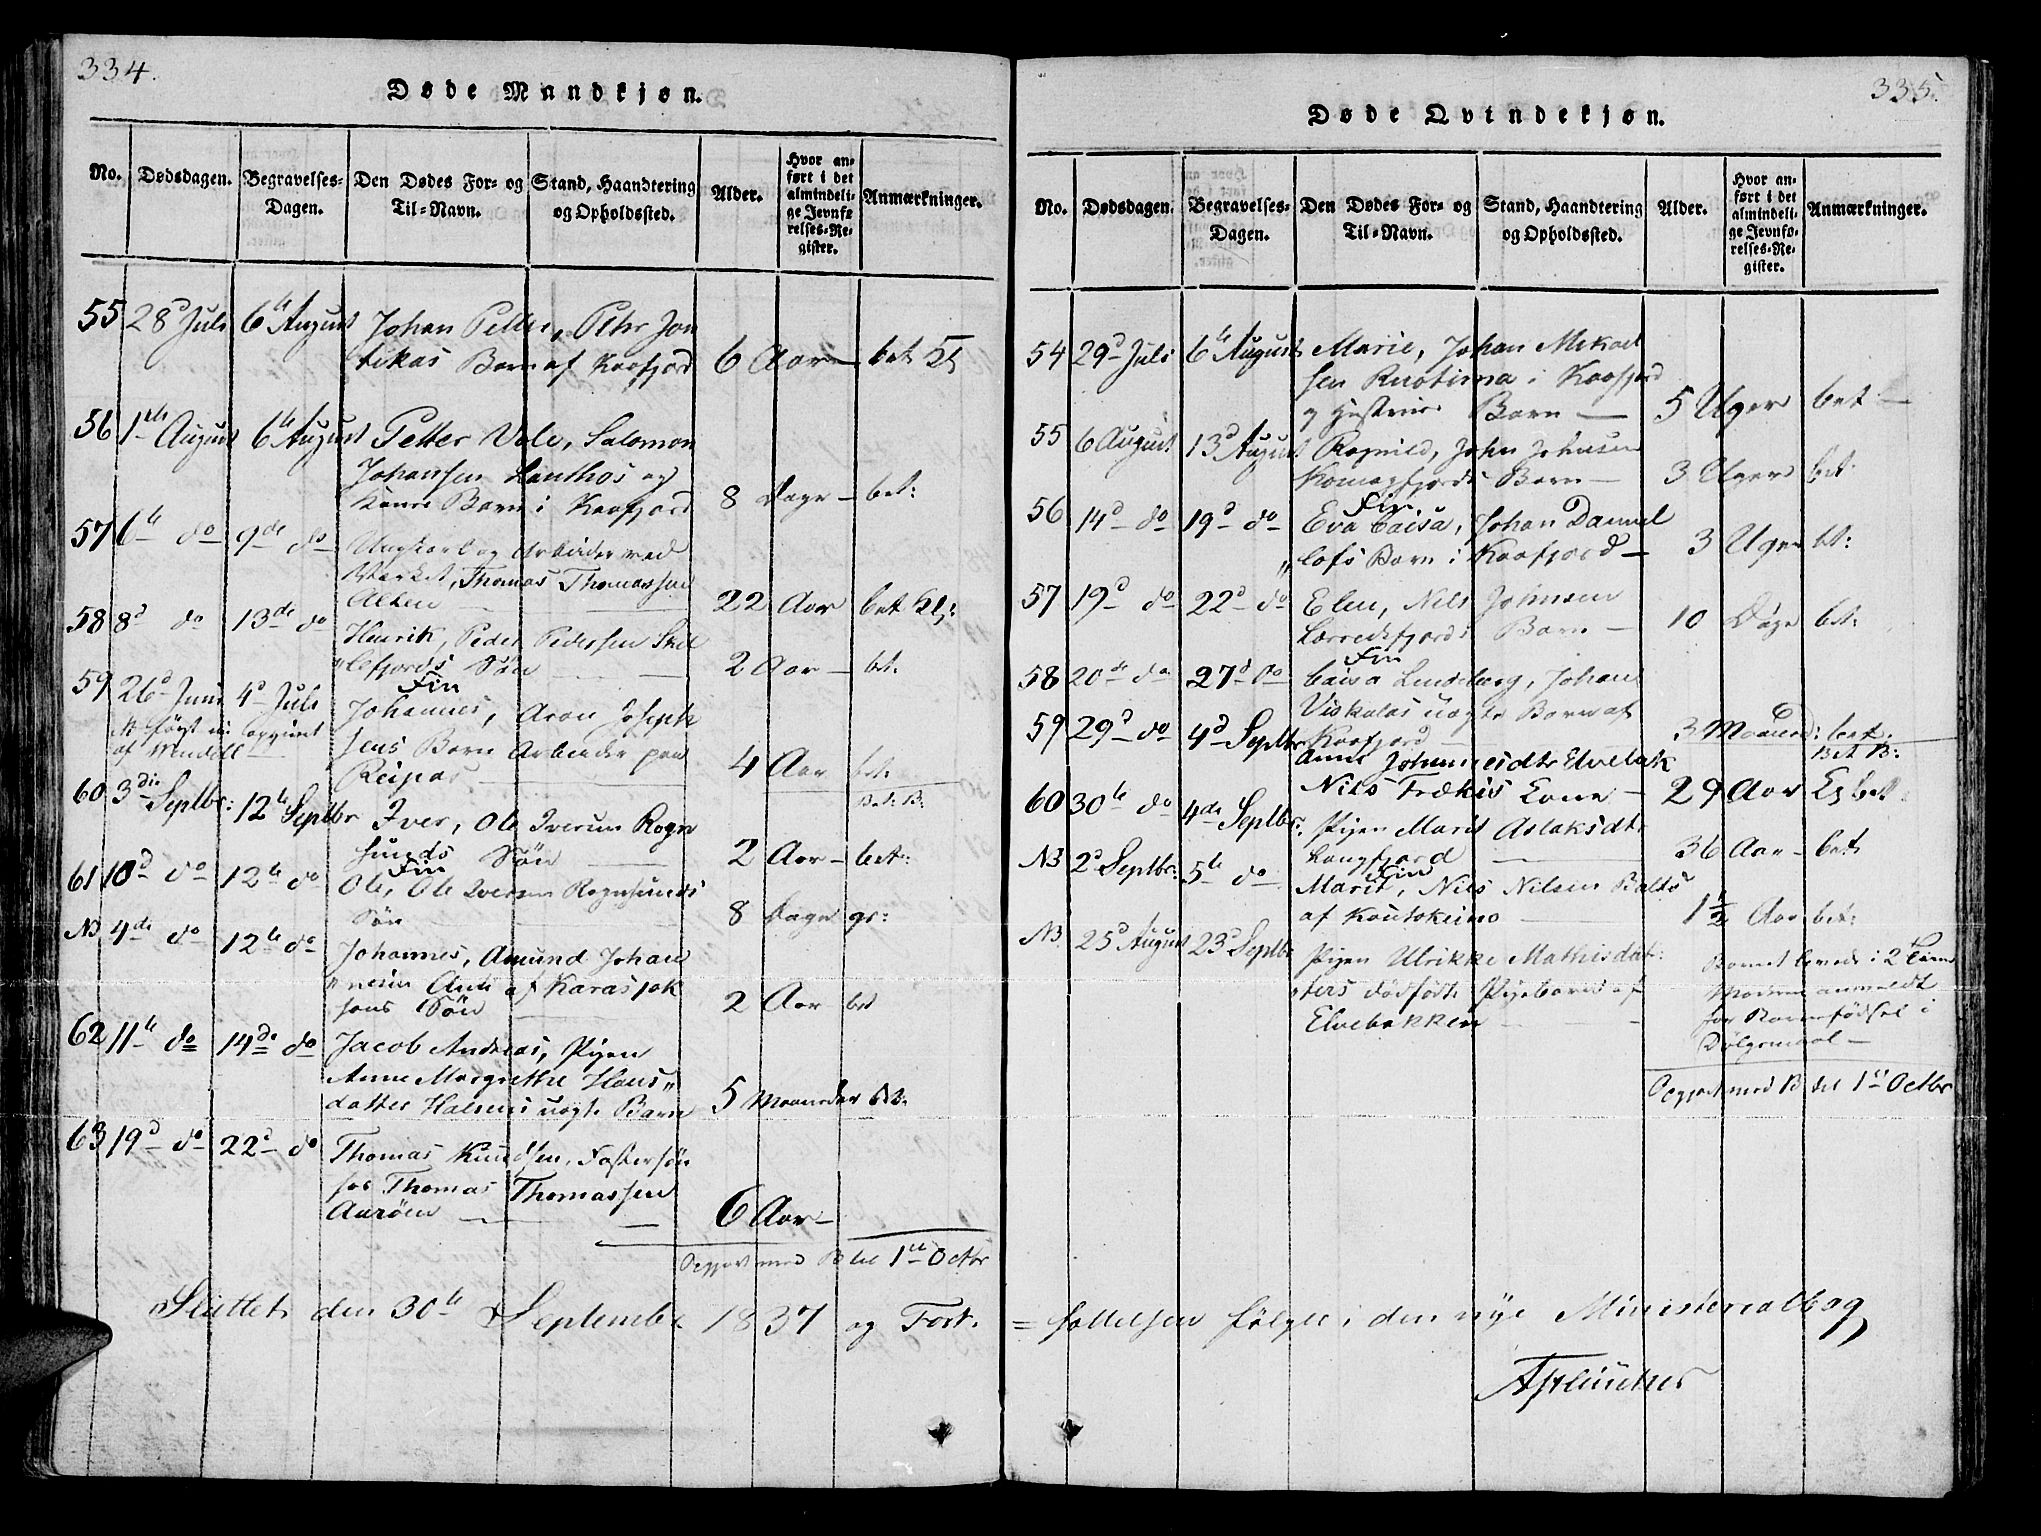 334.
Døde Mandkjøn.
No. Dødsdagen. Begravelses-Dagen. Den Dødes For- og Til-Navn. Stand, Haandtering og Opholdssted. Alder. Hvor anført i det almindelige Jevnførelses-Register. Anmærkninger.
55 28d Juli 6te August Johan Petter, Pehr Jon
tikas Barn af Kaafjord 6 Aar — bet
56 1ste August 6te August Petter Vole, Salomon
Johansen Lanthos og
Kones Barn i Kaafjord 8 Dage — bet:
57 6te do 9de do Ungkarl og Arbeider ved
Værket, Thomas Thomassen
Alten — 22 Aar bet Kl:
58 8d do 13de do Henrik, Peder Pedersen Skil
lefjords Søn — 2 Aar — bet:
Fin
59 26d Juni 4d Juli Johannes, Aron Joseph
sens Barn Arbeider paa
Reipas — 4 Aar bet:
Bet: B:
60 3die Septbr: 12te Septbr Iver, Ole Iversen Rogn
sunds Søn — 2 Aar — bet:
Fin
61 10d do 12te do Ole, Ole Iversen Rognsunds
Søn — 8 Dage gr:
NB 4de do 12te do Johannes, Amund Johan
nesen Anti af Karasjok
hans Søn — 2 Aar bet
62 11te do 14de do Jacob Andreas, Pigen
Anne Margrethe Hans
datter Halsens uægte Barn 5 Maaneder bet:
63 19d do 22d do Thomas Knudsen, Fostersøn
hos Thomas Thomassen
Aarøen — 6 Aar —
Opgjort med B til 1ste Octbr
Sluttet den 30te September 1837 og Fort-
335.
Døde Qvindekjøn.
No. Dødsdagen. Begravelses-Dagen. Den Dødes For- og Til-Navn. Stand, Haandtering og Opholdssted. Alder. Hvor anført i det almindelige Jevnførelses-Register. Anmærkninger.
54 29d Juli 6te August Marie, Johan Mikael
sen Ruotima i Kaafjord
og Hustrues Barn — 5 Uger bet —
55 6 August 13d August Ragnild, John Johnsen
Komagfjords Barn — 3 Uger bet:
Fin
56 14d do 19d do Eva Caisa, Johan Daniel
lofs Barn i Kaafjord — 3 Uger bt:
57 19d do 22d do Elen, Nils Johnsen
Lerredsfjords Barn — 10 Dage bet:
Fin
58 20de do 27d do Caisa Lindeborg, Johan
Viskalas uægte Barn af
Kaafjord — 3 Maaned: bet:
Bet B:
59 29d do 4d Septbr Anne Johannesdtr Elvebak
Nils Frækis Kone — 29 Aar bet:
60 30te do 4de Septbr: Pigen Marit Aslaksdtr
Langfjord — 36 Aar — bet
Fin
NB 2d Septbr: 5te do Marit, Nils Nilsen Balto
af Koutokeino — 1½ Aar bet:
NB. 25d August 23d Septbr Pigen Ulrikke Mathisdat:
ters dødfødte Pigebarn af
Elvebakken —
Barnet levede i 2 Timer
Moderen anmeldt
for Barnefødsel i
Dølgsmaal —
Opgjort med B til 1ste Octbr
= sættelsen følger i den nye Ministerialbog